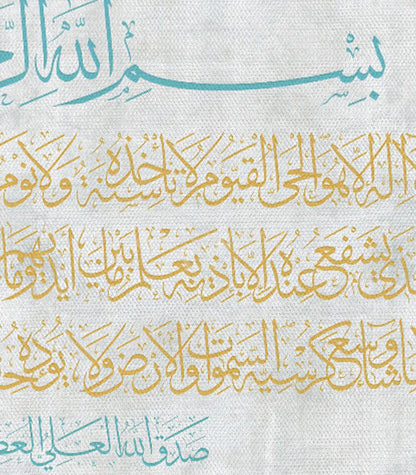 بِسْمِ اللهِ
اله الا هو الحي القيوم لا تأخذه سنة ولا نوم
يشفع عنده الا باذنه يعلم ما بين ايديهم وما
شا وسع كرسيه السموات والارض ولا يؤده
صدق الله العلي